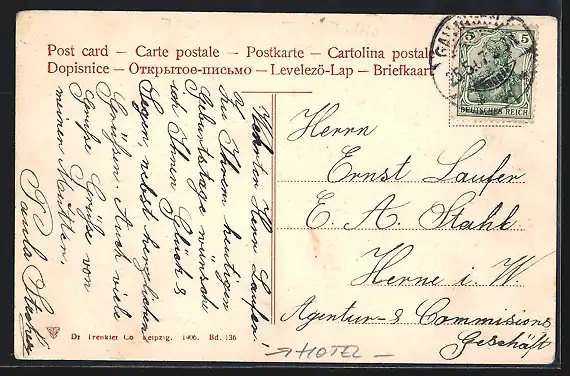 Post card – Carte postale – Postkarte – Cartolina postale
Dopisnice – Открытое-письмо – Levelező-Lap – Briefkaart
5
DEUTSCHES REICH
Werter Herr Laufer!
Zu Ihrem heutigen
Geburtstage wünsche
ich Ihnen Glück &
Segen, nebst herzlichen
Grüßen. Auch viele
Grüße von
meinen Mutter.
Paula
Herrn
Ernst Laufer
E. A. Stahl
Herne i. W
Agentur- & Commisions
Geschäft
Dr Trenkler Co Leipzig. 1906. Bd. 136
HOTEL